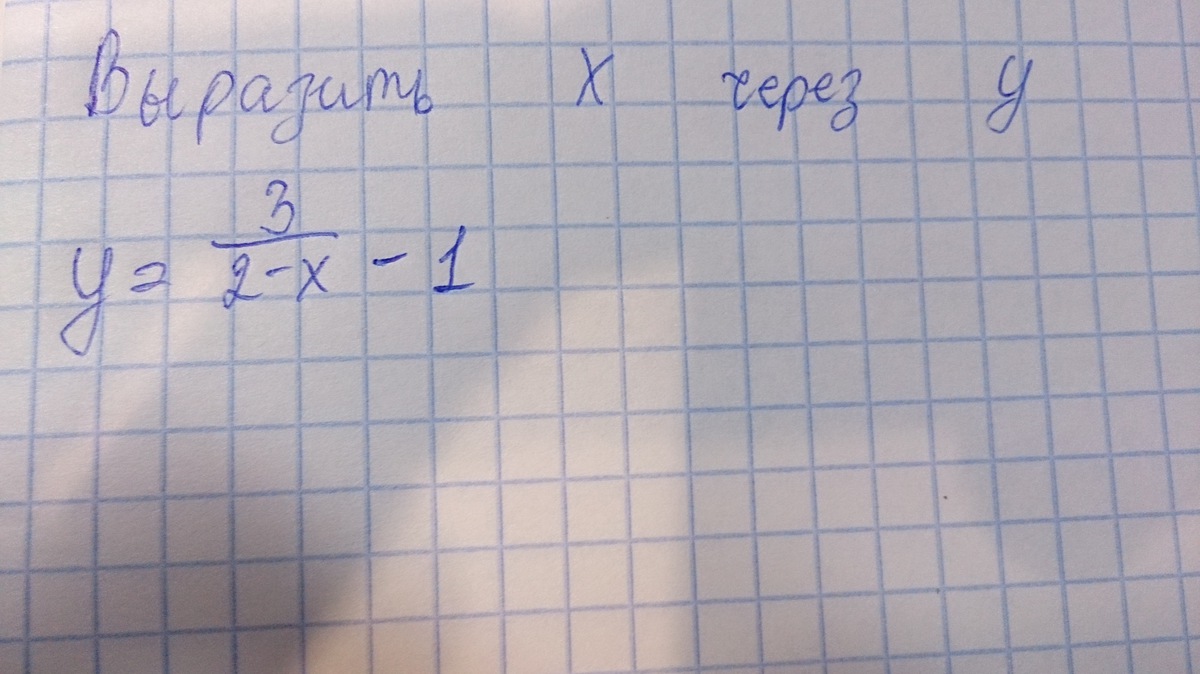 Выразить x через y
y = \frac{3}{2-x} - 1